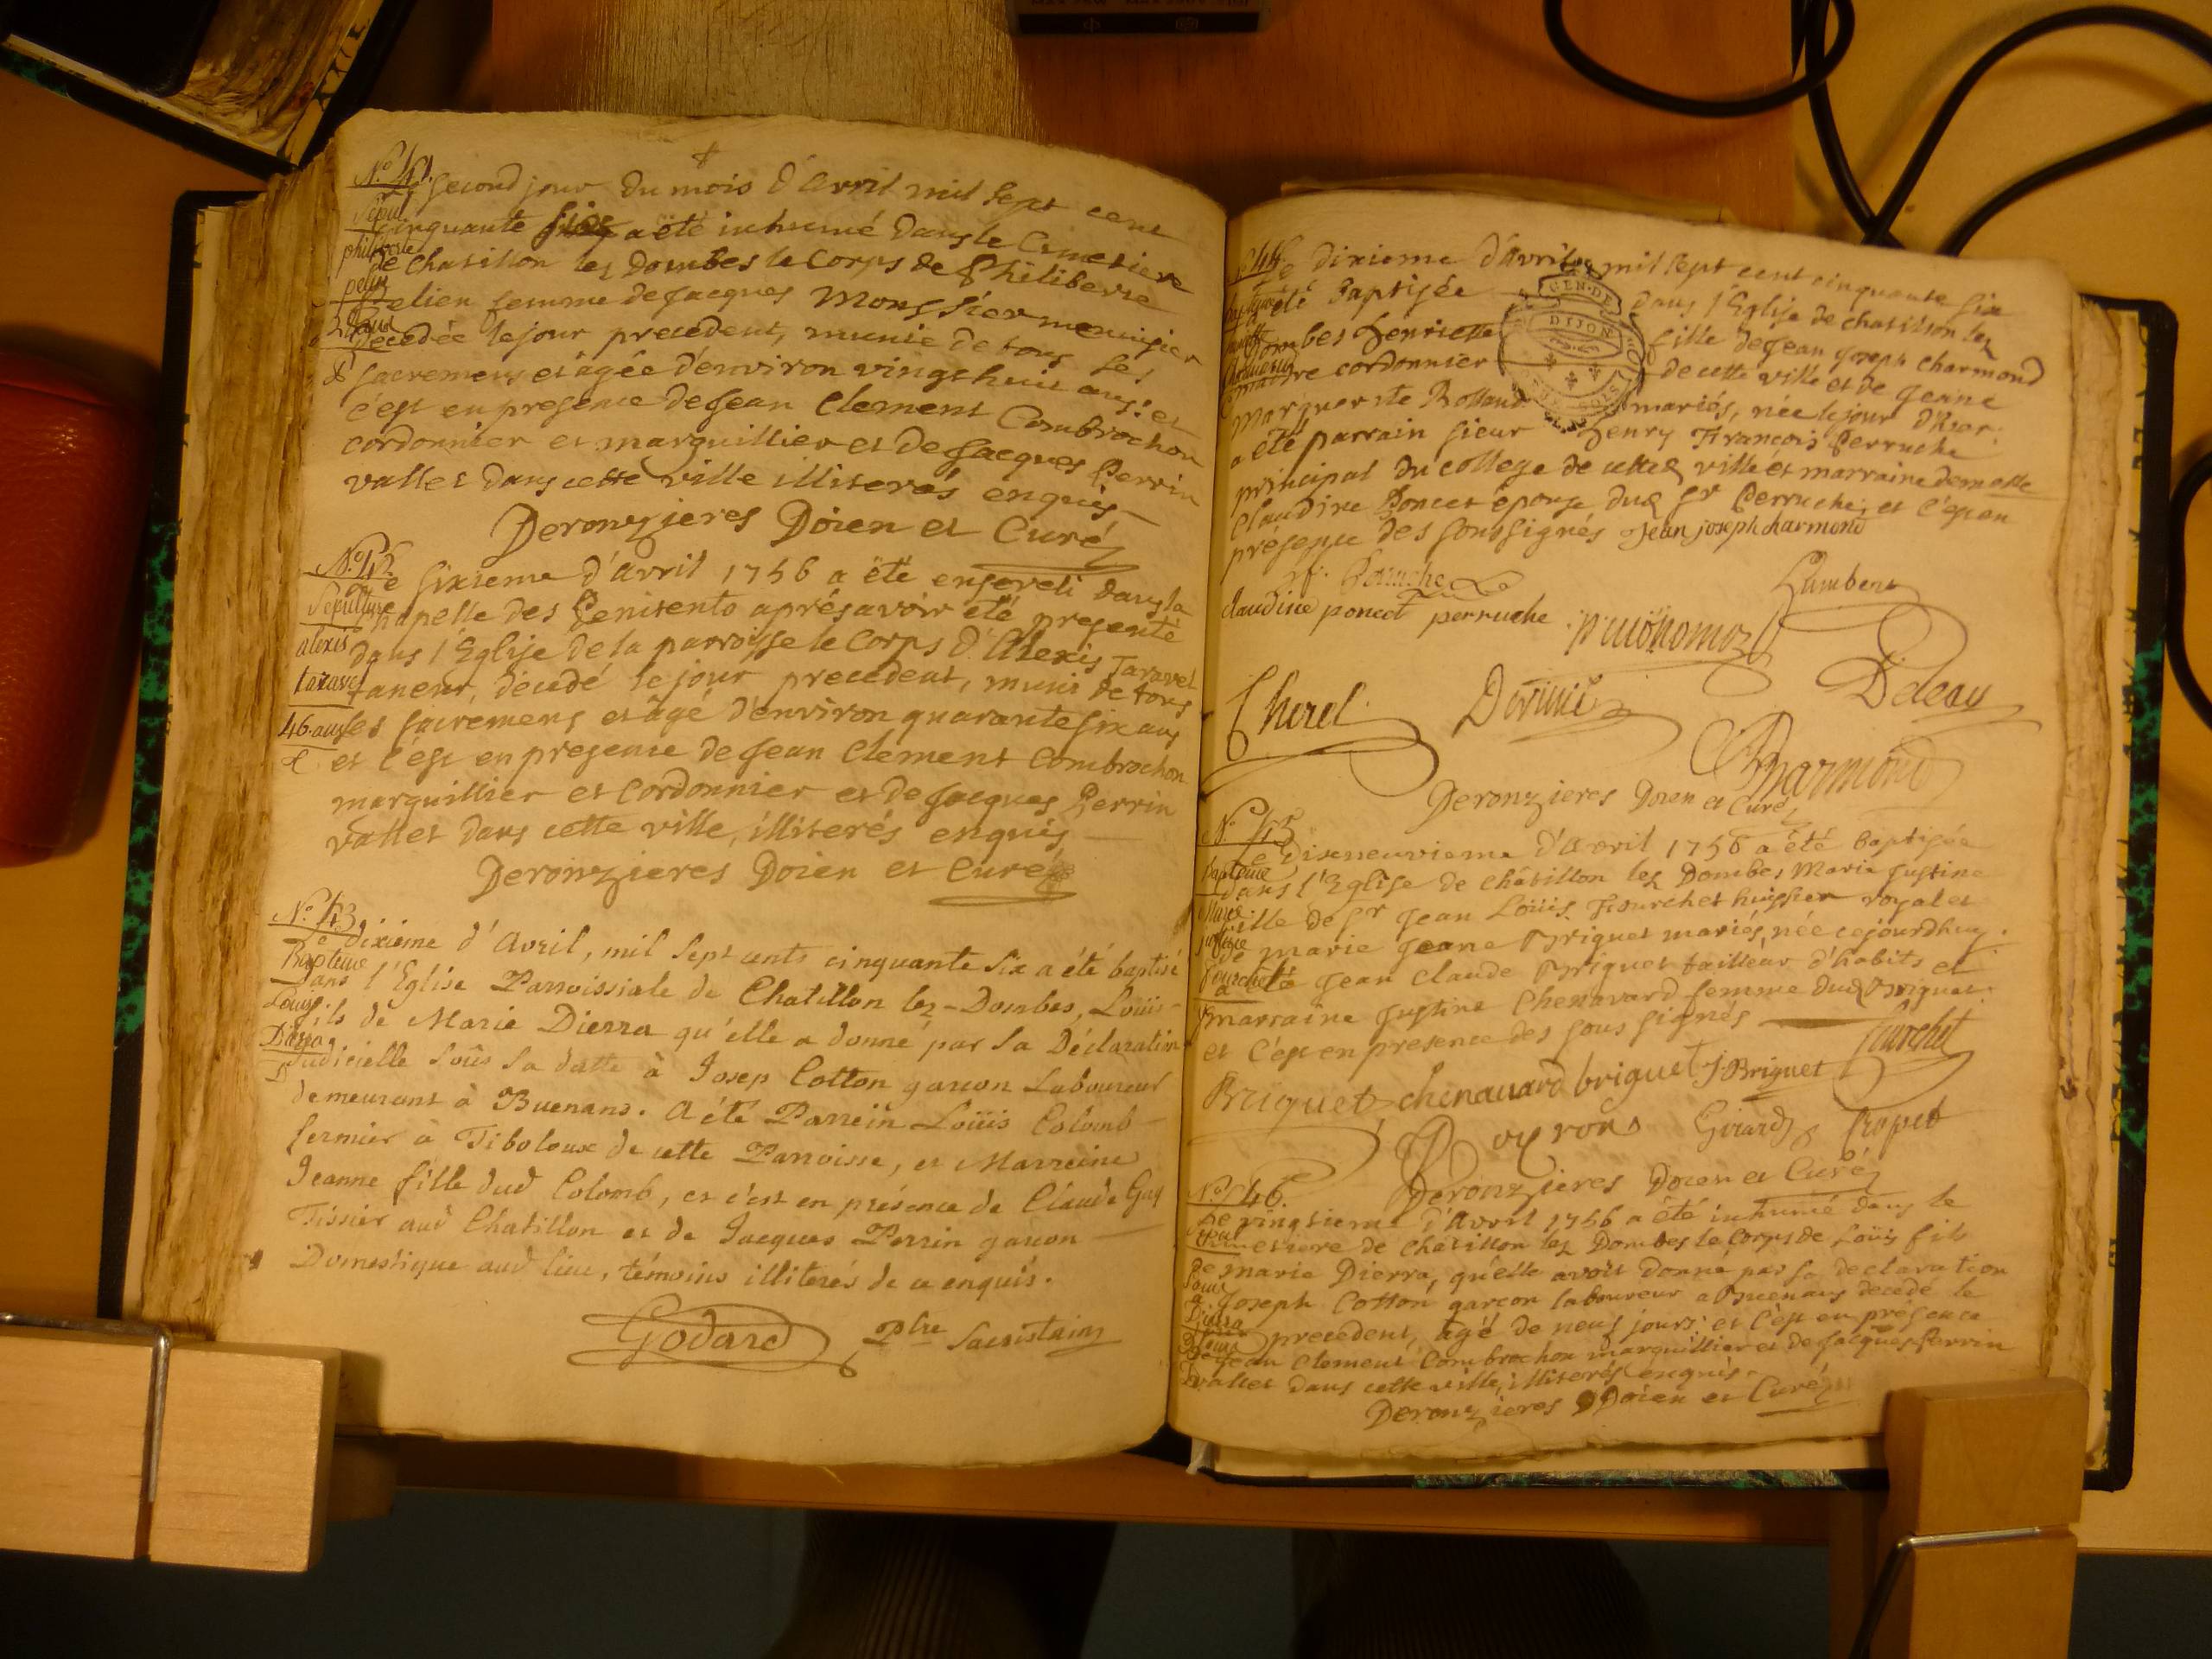 N.º 41.
Sepul.
philiberte
pelin
28 ans
Le second jour du mois d'Avril mil sept cent
cinquante six a été inhumé dans le Cimetiere
de Chatillon lez Dombes le Corps de Philiberte
Pelien femme de Jacques Monssier menuisier
decedée le jour precedent, munie de tous ses
sacremens et âgée d'environ vingt huit ans: et
c'est en presence de Jean Clement Combrochon
cordonnier et marguillier et de Jacques Perrin
vallet dans cette ville illiterés enquis
Deronzieres Doien et Curé
N.º 42
Sepulture
alexis
taravel
46. ans
Le sixieme d'Avril 1756 a été enseveli dans la
Chapelle des Penitents aprés avoir été presenté
dans l'Eglise de la parroisse le Corps d'Alexis Taravel
taneur, decedé le jour precedent, muni de tous
ses sacremens et âgé d'environ quarante six ans
et c'est en presence de Jean Clement Combrochon
marguillier et Cordonnier et de Jacques Perrin
vallet dans cette ville, illiterés enquis
Deronzieres Doien et Curé
N.º 43
Bapteme
Louis
Dierra
Le dixième d'Avril, mil sept cents cinquante six a été baptisé
Dans l'Eglise Parroissiale de Chatillon lez-Dombes, Loüis
fils de Marie Dierra qu'elle a donné par sa Déclaration
Judicielle soûs sa datte à Josep Cotton garcon Laboureur
demeurant à Buenand. A été Parrein Loüis Colomb
fermier à Tiboloux de cette Parroisse, et Marreine
Jeanne fille dud Colomb, et c'est en présence de Claude Guy
Tissier aud Chatillon et de Jacques Perrin garcon
Domestique aud lieu, témoins illiterés de ce enquis.
Godard ptre Sacristain
N.º 44
Le dixieme d'Avril mil sept cent cinquante six
a été Baptisée dans l'Eglise de chatillon les
Dombes henriette fille de Jean Joseph Charmond
maitre cordonnier de cette ville et de Jeane
Marguerite Rolland mariés, née le jour d'hier:
a été parrain sieur henry François Perruche
principal du college de cette ville et marraine demoelle
Claudine Poncet épouse dud Sr Perruche; et c'est en
presence des soussignés Jean joseph charmond
GEN. DE
DIJON
Perruche
Lambert
claudine poncet perruche
Cherel
Charmond
Deronzieres Doien et Curé
N.º 45
bapteme
Marie
justine
fourchet
Le dixneuvieme d'Avril 1756 a été baptisée
dans l'Eglise de Châtillon lez Dombes Marie Justine
fille de Sr Jean Loüis Fourchet huissier royal et
de marie Jeane Briguet mariés, née cejourdhuy.
a été Jean Claude Briguet tailleur d'habits et
marraine Justine Chenavard femme dud Briguet
et c'est en presence des sous signés
fourchet
Briguet chenavard briguet J. Briguet
Girard Cropet
Deronzieres Doien et Curé
N.º 46.
Sepul
Louis
Dierra
Le vingtieme d'Avril 1756 a été inhumé dans le
Cimetiere de Châtillon lez Dombes le Corps de Loüis fils
de marie Dierra, qu'elle avoit donné par sa declaration
a Joseph Cotton garcon laboureur a Buenans decedé le
precedent, âgé de neuf jours: et c'est en présence
de Jean Clement Combrochon marguillier et de Jacques Perrin
vallet dans cette ville, illiterés enquis.
Deronzieres Doien et Curé